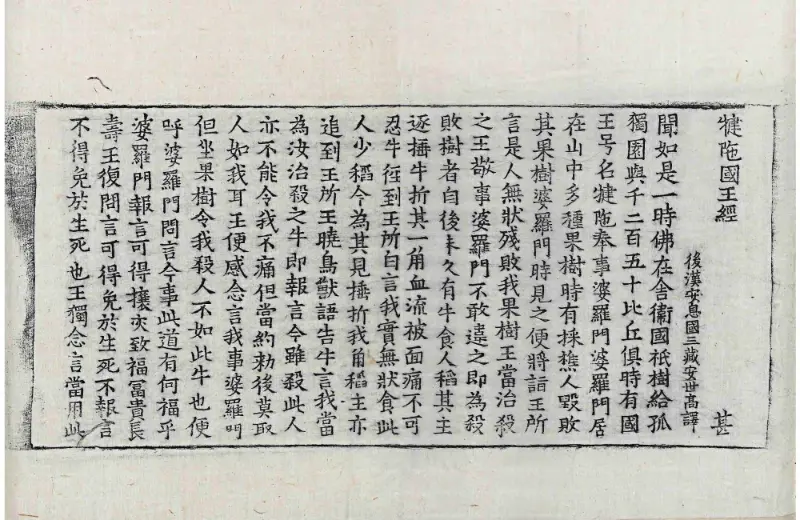 犍陁國王經
甚
後漢安息國三藏安世高譯
聞如是一時佛在舍衛國祇樹給孤
獨園與千二百五十比丘俱時有國
王号名犍陁奉事婆羅門婆羅門居
在山中多種果樹時有採樵人毀敗
其果樹婆羅門時見之便將詣王所
言是人無狀殘敗我果樹王當治殺
之王敬事婆羅門不敢違之即為殺
敗樹者自後未久有牛食人稻其主
逐捶牛折其一角血流被面痛不可
忍牛徑到王所白言我實無狀食此
人少稻今為其見捶折我角稻主亦
追到王所王曉鳥獸語告牛言我當
為汝治殺之牛即報言今雖殺此人
亦不能令我不痛但當約勑後莫取
人如我耳王便感念言我事婆羅門
但坐果樹令我殺人不如此牛也便
呼婆羅門問言今事此道有何福乎
婆羅門報言可得攘灾致福冨貴長
壽王復問言可得免於生死不報言
不得免於生死也王獨念言當用此